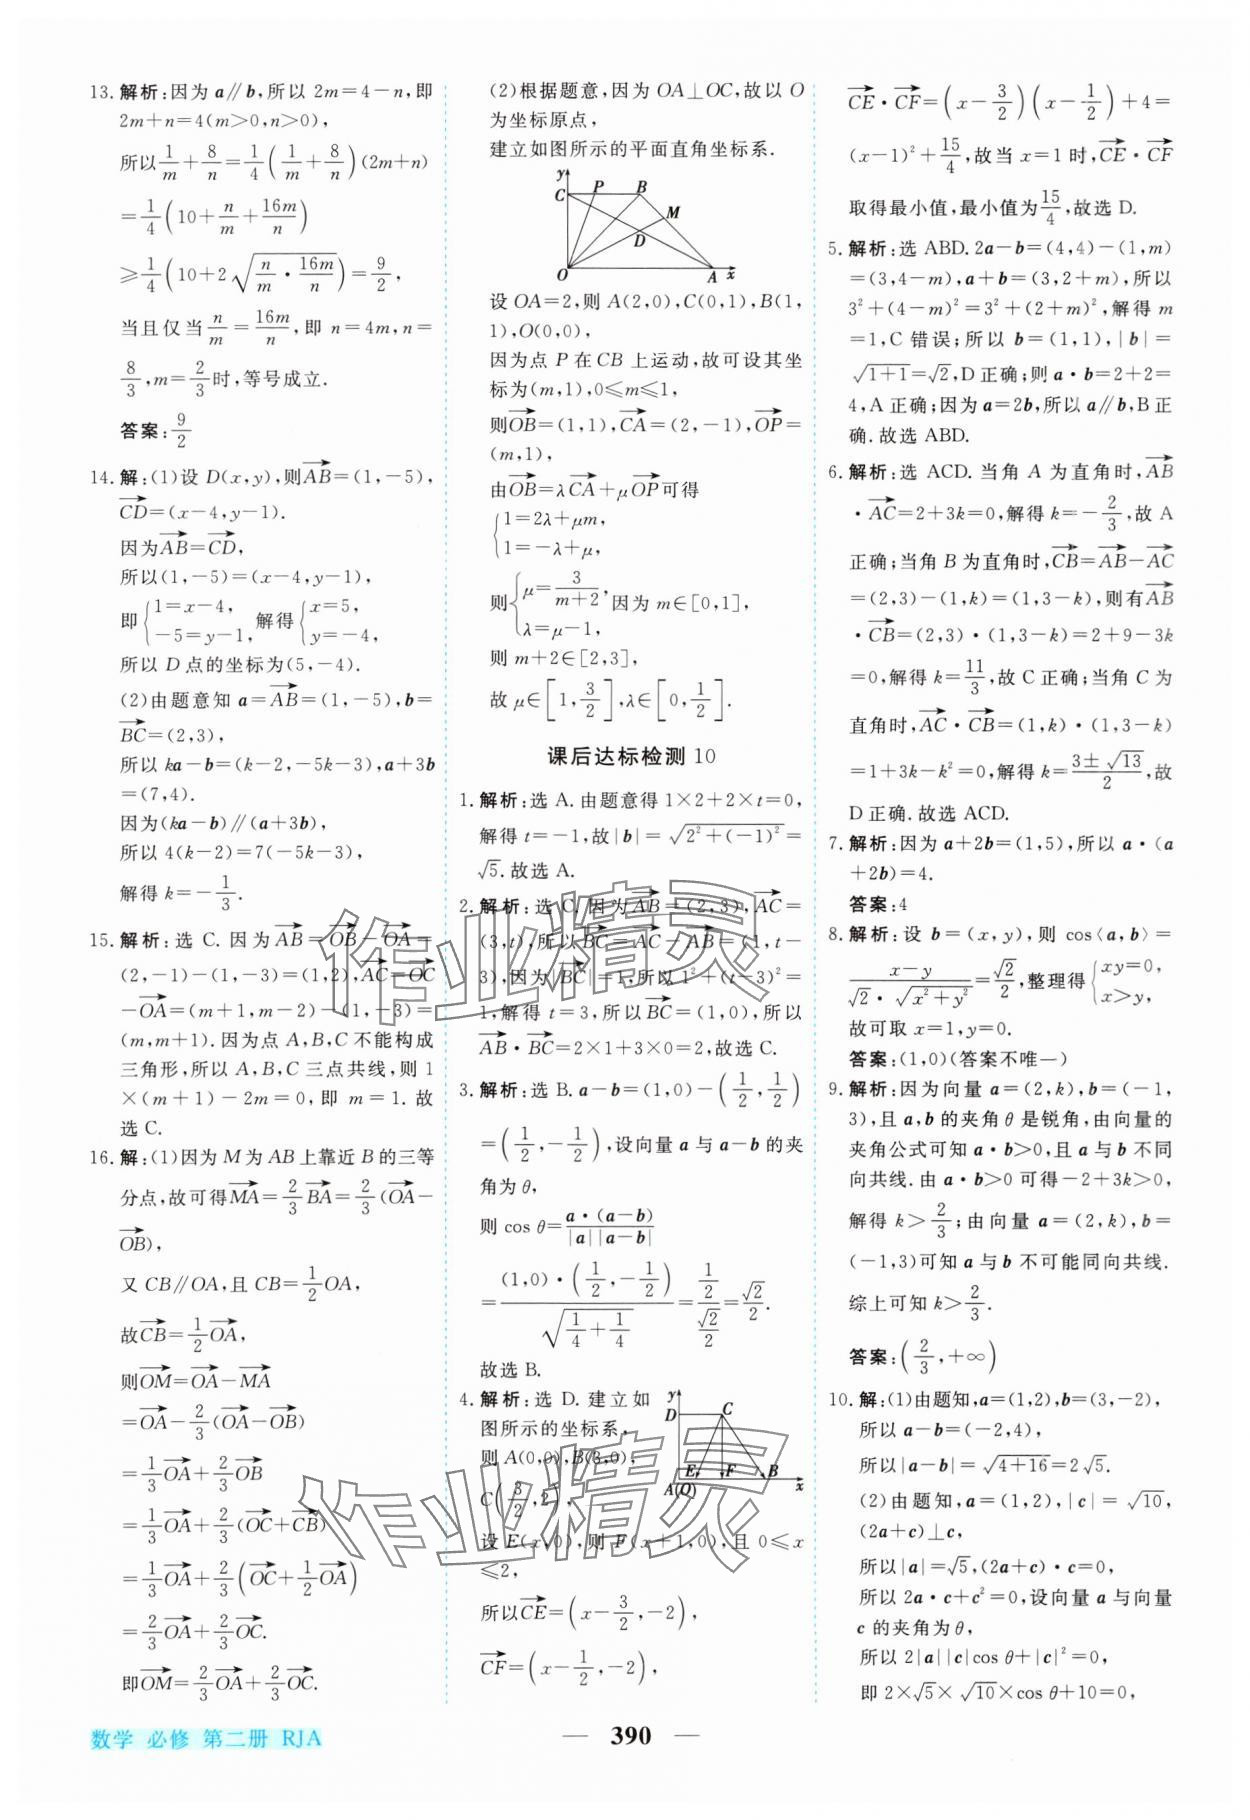 13. 解析:因为 a∥b,所以 2m=4-n,即
2m+n=4(m>0,n>0),
所以1/m+8/n=1/4(1/m+8/n)(2m+n)
=1/4(10+n/m+16m/n)
≥1/4(10+2√(n/m·16m/n))=9/2,
当且仅当n/m=16m/n,即 n=4m,n=
8/3,m=2/3时,等号成立.
答案:9/2
14. 解:(1)设 D(x,y),则AB→=(1,-5),
CD→=(x-4,y-1).
因为AB→=CD→,
所以(1,-5)=(x-4,y-1),
即{1=x-4, -5=y-1, 解得{x=5, y=-4,
所以 D 点的坐标为(5,-4).
(2)由题意知 a=AB→=(1,-5),b=
BC→=(2,3),
所以 ka-b=(k-2,-5k-3),a+3b
=(7,4).
因为(ka-b)∥(a+3b),
所以 4(k-2)=7(-5k-3),
解得 k=-1/3.
15. 解析:选 C. 因为AB→=OB→-OA→=
(2,-1)-(1,-3)=(1,2),AC→=OC→
-OA→=(m+1,m-2)-(1,-3)=
(m,m+1).因为点 A,B,C 不能构成
三角形,所以 A,B,C 三点共线,则 1
×(m+1)-2m=0,即 m=1. 故
选 C.
16. 解:(1)因为 M 为 AB 上靠近 B 的三等
分点,故可得MA→=2/3BA→=2/3(OA→-
OB→),
又 CB∥OA,且 CB=1/2OA,
故CB→=1/2OA→,
则OM→=OA→-MA→
=OA→-2/3(OA→-OB→)
=1/3OA→+2/3OB→
=1/3OA→+2/3(OC→+CB→)
=1/3OA→+2/3(OC→+1/2OA→)
=2/3OA→+2/3OC→.
即OM→=2/3OA→+2/3OC→.
(2)根据题意,因为 OA⊥OC,故以 O
为坐标原点,
建立如图所示的平面直角坐标系.
y
C P B
M
D
O A x
设 OA=2,则 A(2,0),C(0,1),B(1,
1),O(0,0),
因为点 P 在CB 上运动,故可设其坐
标为(m,1),0≤m≤1,
则OB→=(1,1),CA→=(2,-1),OP→=
(m,1),
由OB→=λCA→+μOP→可得
{1=2λ+μm, 1=-λ+μ,
则{μ=3/(m+2), λ=μ-1, 因为 m∈[0,1],
则 m+2∈[2,3],
故 μ∈[1,3/2],λ∈[0,1/2].
课后达标检测 10
1. 解析:选 A. 由题意得 1×2+2×t=0,
解得 t=-1,故|b|=√(2²+(-1)²)=
√5. 故选 A.
2. 解析:选 C. 因为AB→=(2,3),AC→=
(3,t),所以BC→=AC→-AB→=(1,t-
3),因为|BC→|=1,所以 1²+(t-3)²=
1,解得 t=3,所以BC→=(1,0),所以
AB→·BC→=2×1+3×0=2,故选 C.
3. 解析:选 B. a-b=(1,0)-(1/2,1/2)
=(1/2,-1/2),设向量 a 与 a-b 的夹
角为 θ,
则 cos θ=a·(a-b)/|a||a-b|
=(1,0)·(1/2,-1/2)/√(1/4+1/4)=(1/2)/(√2/2)=√2/2.
故选 B.
4. 解析:选 D. 建立如
图所示的坐标系,
则 A(0,0),B(3,0),
C(3/2,2),
y
D C
E F B
A(O) x
设 E(x,0),则 F(x+1,0),且 0≤x
≤2,
所以CE→=(x-3/2,-2),
CF→=(x-1/2,-2),
CE→·CF→=(x-3/2)(x-1/2)+4=
(x-1)²+15/4,故当 x=1 时,CE→·CF→
取得最小值,最小值为15/4,故选 D.
5. 解析:选 ABD. 2a-b=(4,4)-(1,m)
=(3,4-m),a+b=(3,2+m),所以
3²+(4-m)²=3²+(2+m)²,解得 m
=1,C 错误;所以 b=(1,1),|b|=
√(1+1)=√2,D 正确;则 a·b=2+2=
4,A 正确;因为 a=2b,所以 a∥b,B 正
确. 故选 ABD.
6. 解析:选 ACD. 当角 A 为直角时,AB→
·AC→=2+3k=0,解得 k=-2/3,故 A
正确;当角 B 为直角时,CB→=AB→-AC→
=(2,3)-(1,k)=(1,3-k),则有AB→
·CB→=(2,3)·(1,3-k)=2+9-3k
=0,解得 k=11/3,故 C 正确;当角 C 为
直角时,AC→·CB→=(1,k)·(1,3-k)
=1+3k-k²=0,解得 k=(3±√13)/2,故
D 正确. 故选 ACD.
7. 解析:因为 a+2b=(1,5),所以 a·(a
+2b)=4.
答案:4
8. 解析:设 b=(x,y),则 cos⟨a,b⟩=
(x-y)/(√2·√(x²+y²))=√2/2,整理得{xy=0, x>y,
故可取 x=1,y=0.
答案:(1,0)(答案不唯一)
9. 解析:因为向量 a=(2,k),b=(-1,
3),且 a,b 的夹角 θ 是锐角,由向量的
夹角公式可知 a·b>0,且 a 与 b 不同
向共线. 由 a·b>0 可得-2+3k>0,
解得 k>2/3;由向量 a=(2,k),b=
(-1,3)可知 a 与 b 不可能同向共线.
综上可知 k>2/3.
答案:(2/3,+∞)
10. 解:(1)由题知,a=(1,2),b=(3,-2),
所以 a-b=(-2,4),
所以|a-b|=√(4+16)=2√5.
(2)由题知,a=(1,2),|c|=√10,
(2a+c)⊥c,
所以|a|=√5,(2a+c)·c=0,
所以 2a·c+c²=0,设向量 a 与向量
c 的夹角为 θ,
所以 2|a||c|cos θ+|c|²=0,
即 2×√5×√10×cos θ+10=0,
作业精灵
作业精灵
数学 必修 第二册 RJA
— 390 —